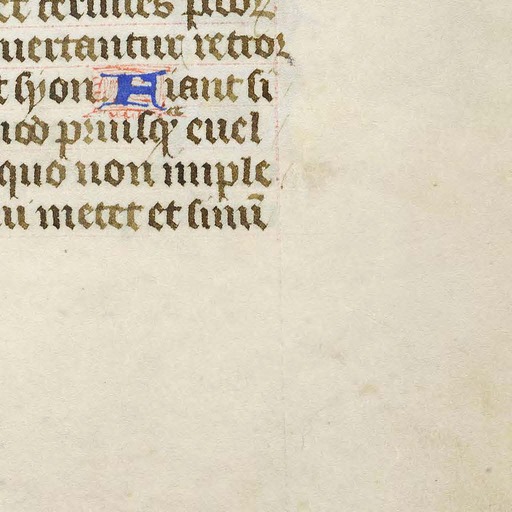 cervices peccoꝝ
uertantur retror
syon Fiant si
quod priusqꝫ euel
quo non imple
qui metet et sinū